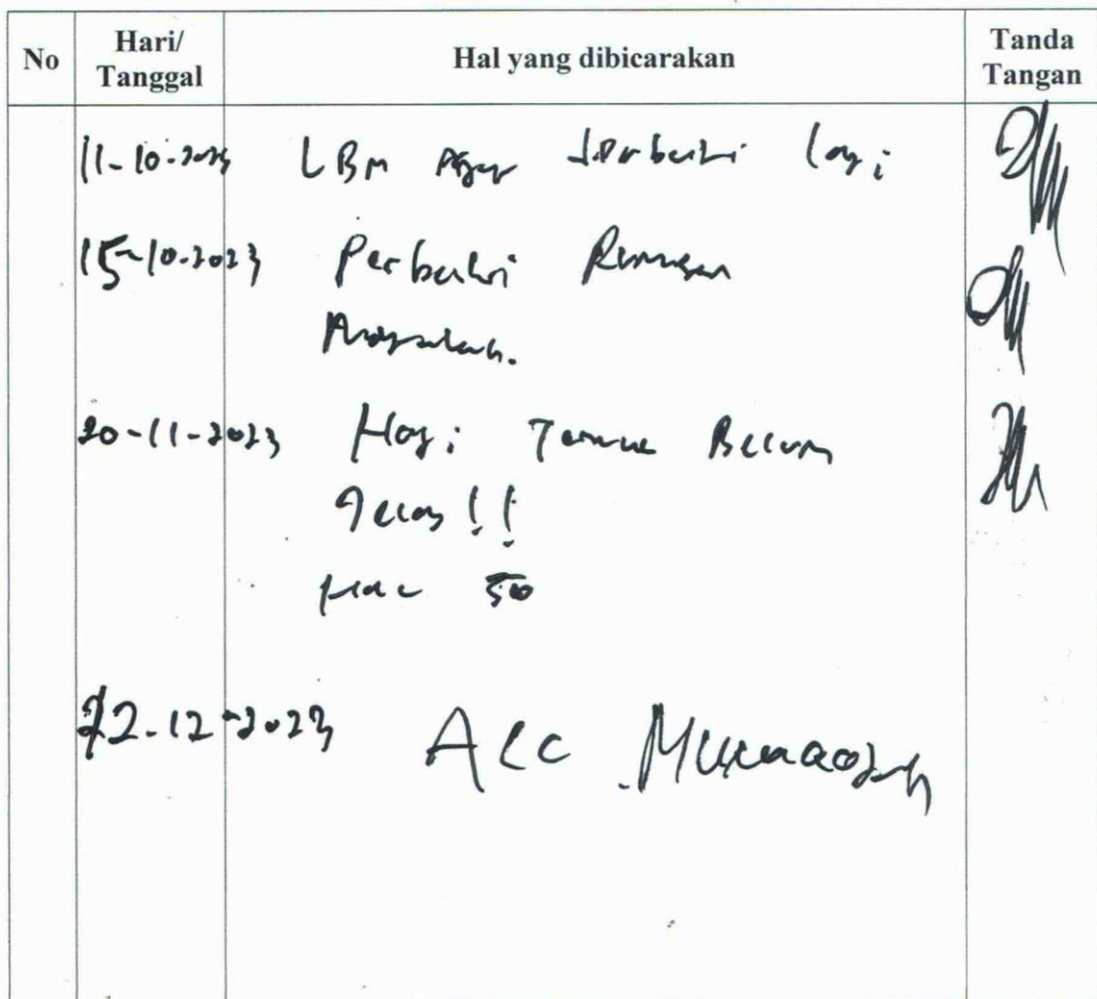 No Hari/ Tanggal Hal yang dibicarakan Tanda Tangan
11-10-2023 LBM Agar diperbaiki lagi
15-10-2023 Perbaiki Rumusan
Masalah.
20-11-2023 Hasil Temuan Belum
Jelas!!
Hal 50
22-12-2023 Acc Munaqosah